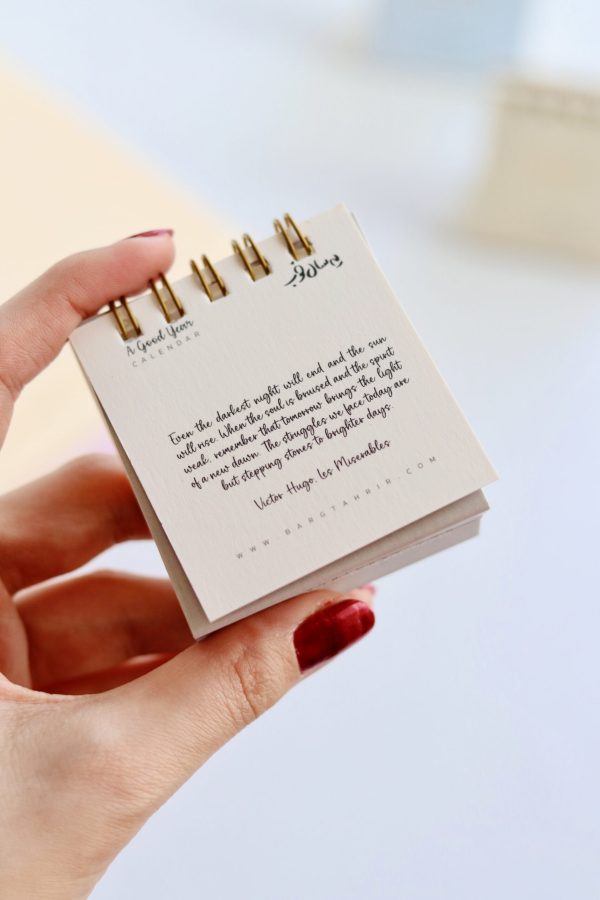 A Good Year
CALENDAR
Even the darkest night will end and the sun
will rise. When the soul is bruised and the spirit
weak, remember that tomorrow brings the light
of a new dawn. The struggles we face today are
but stepping stones to brighter days.
Victor Hugo, Les Miserables
WWW.BARGTAHRIR.COM